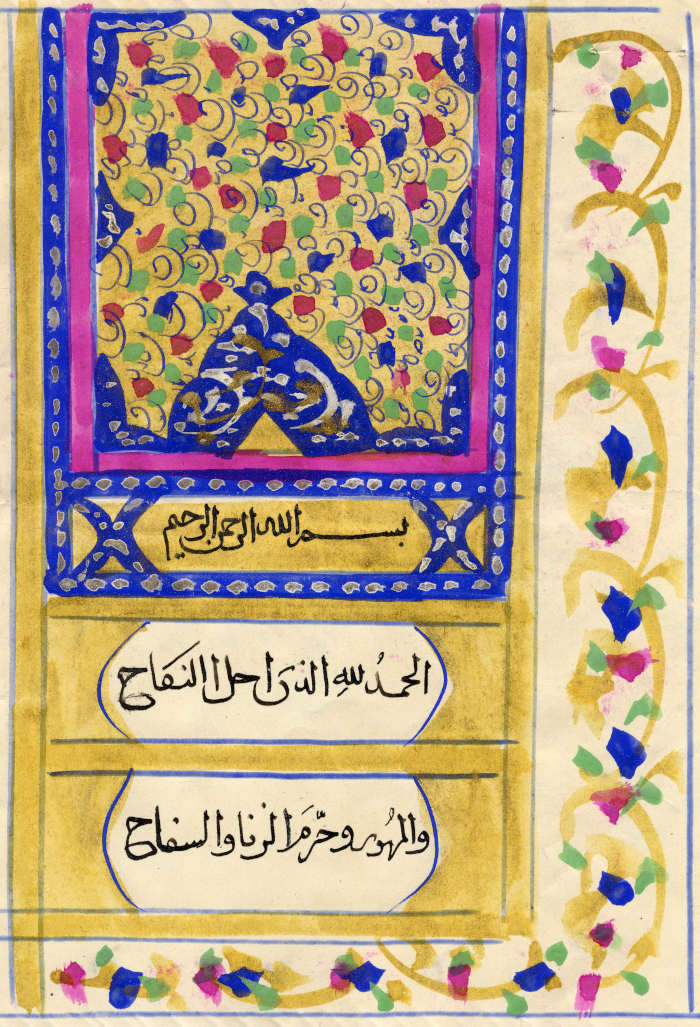 بسم الله الرحمن الرحيم
الحمدُ للهِ الذى احل النكاح
والمهُور وحرّمَ الزنا والسفاح